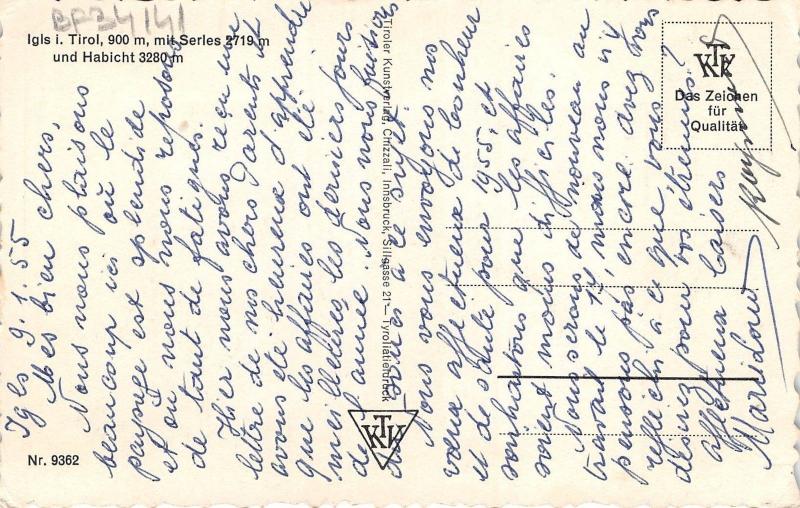 EF34141
Igls i. Tirol, 900 m, mit Serles 2719 m
und Habicht 3280 m
KTK
Das Zeichen
für
Qualität
Tiroler Kunstverlag Chizzali, Innsbruck, Sillgasse 21 — Tyroliatiefdruck
KTK
Nr. 9362
Igls 9.1.55
Mes bien chers,
Nous nous plaisons
beaucoup ici où le
paysage est splendide
et où nous nous reposons
de tant de fatigues.
Hier nous avons reçu une
lettre de nos chers Parents et
avons été heureux d'apprendre
que les affaires ont été
meilleures les derniers jours
de l'année. Nous nous faisions
soucis à ce sujet.
Nous vous envoyons nos
vœux affectueux de bonheur
et de santé pour 1955, et
souhaitons que les affaires
soient moins difficiles.
Nous serons de nouveau au
travail le 17, mais nous n'y
pensons pas encore. Avez vous
réfléchi à ce que vous
désirez pour vos étrennes?
Affectueux baisers
Marilou
Raymond